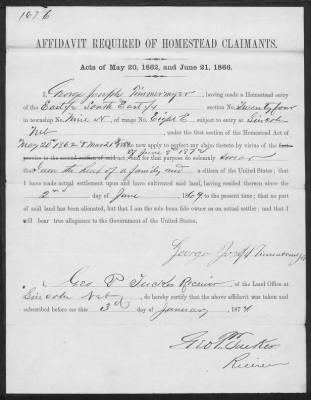 1676
AFFIDAVIT REQUIRED OF HOMESTEAD CLAIMANTS.
Acts of May 20, 1862, and June 21, 1866.
I, George Joseph Timmermyer, having made a Homestead entry
of the East ½ South East ¼ section No. Twenty four
in township No. Nine N, of range No. Eight E, subject to entry at Lincoln
Neb, under the first section of the Homestead Act of
May 20th 1862 & do now apply to perfect my claim thereby by virtue of the
of June 8 1872
and for that purpose do solemnly swear
that I am the head of a family and a citizen of the United States; that I
have made actual settlement upon and have cultivated said land, having resided thereon since the
2nd day of June, 1869, to the present time; that no part
of said land has been alienated, but that I am the sole bona fide owner as an actual settler; and that I
will bear true allegiance to the Government of the United States.
George Joseph Timmermyer
I, Geo P Tucker Receiver, of the Land Office at
Lincoln Neb, do hereby certify that the above affidavit was taken and
subscribed before me this 3d day of January, 1876
Geo P. Tucker
Receiver